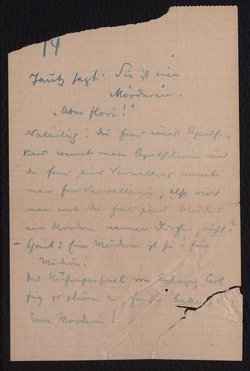 14
sagt: Sie ist eine
Mörderin.
"Aber Flori!"
Natürlich! die Frau eines Apothe-
kers nennt man Apothekerin und
die Frau eines Verwalters nennt
man Frau Verwalterin, also wird
man wohl die Frau eines Mörders
ein Mörderin nennen dürfen, nicht?
Eine Mörderin ist sie! Eine
Mörderin!
Das Küchenpersonal vom
Eine Mörderin!